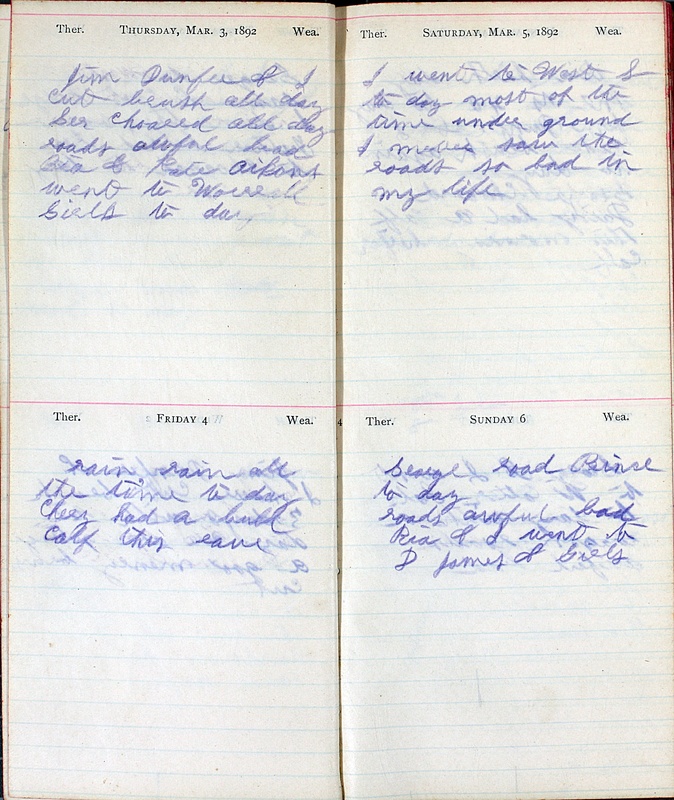 Ther. THURSDAY, MAR. 3, 1892 Wea.
Jim Dunfee & I
cut brush all day
Ber choared all day
roads awful bad
Ria & Kate
went to
Giels to day
Ther. FRIDAY 4 Wea.
rain rain all
the time to day
had a bull
calf this eave
Ther. SATURDAY, MAR. 5, 1892 Wea.
I went to West S
to day most of the
time under ground
I never saw the
roads so bad in
my life
Ther. SUNDAY 6 Wea.
road Prince
to day
roads awful bad
Ria & I went to
D James & Giels